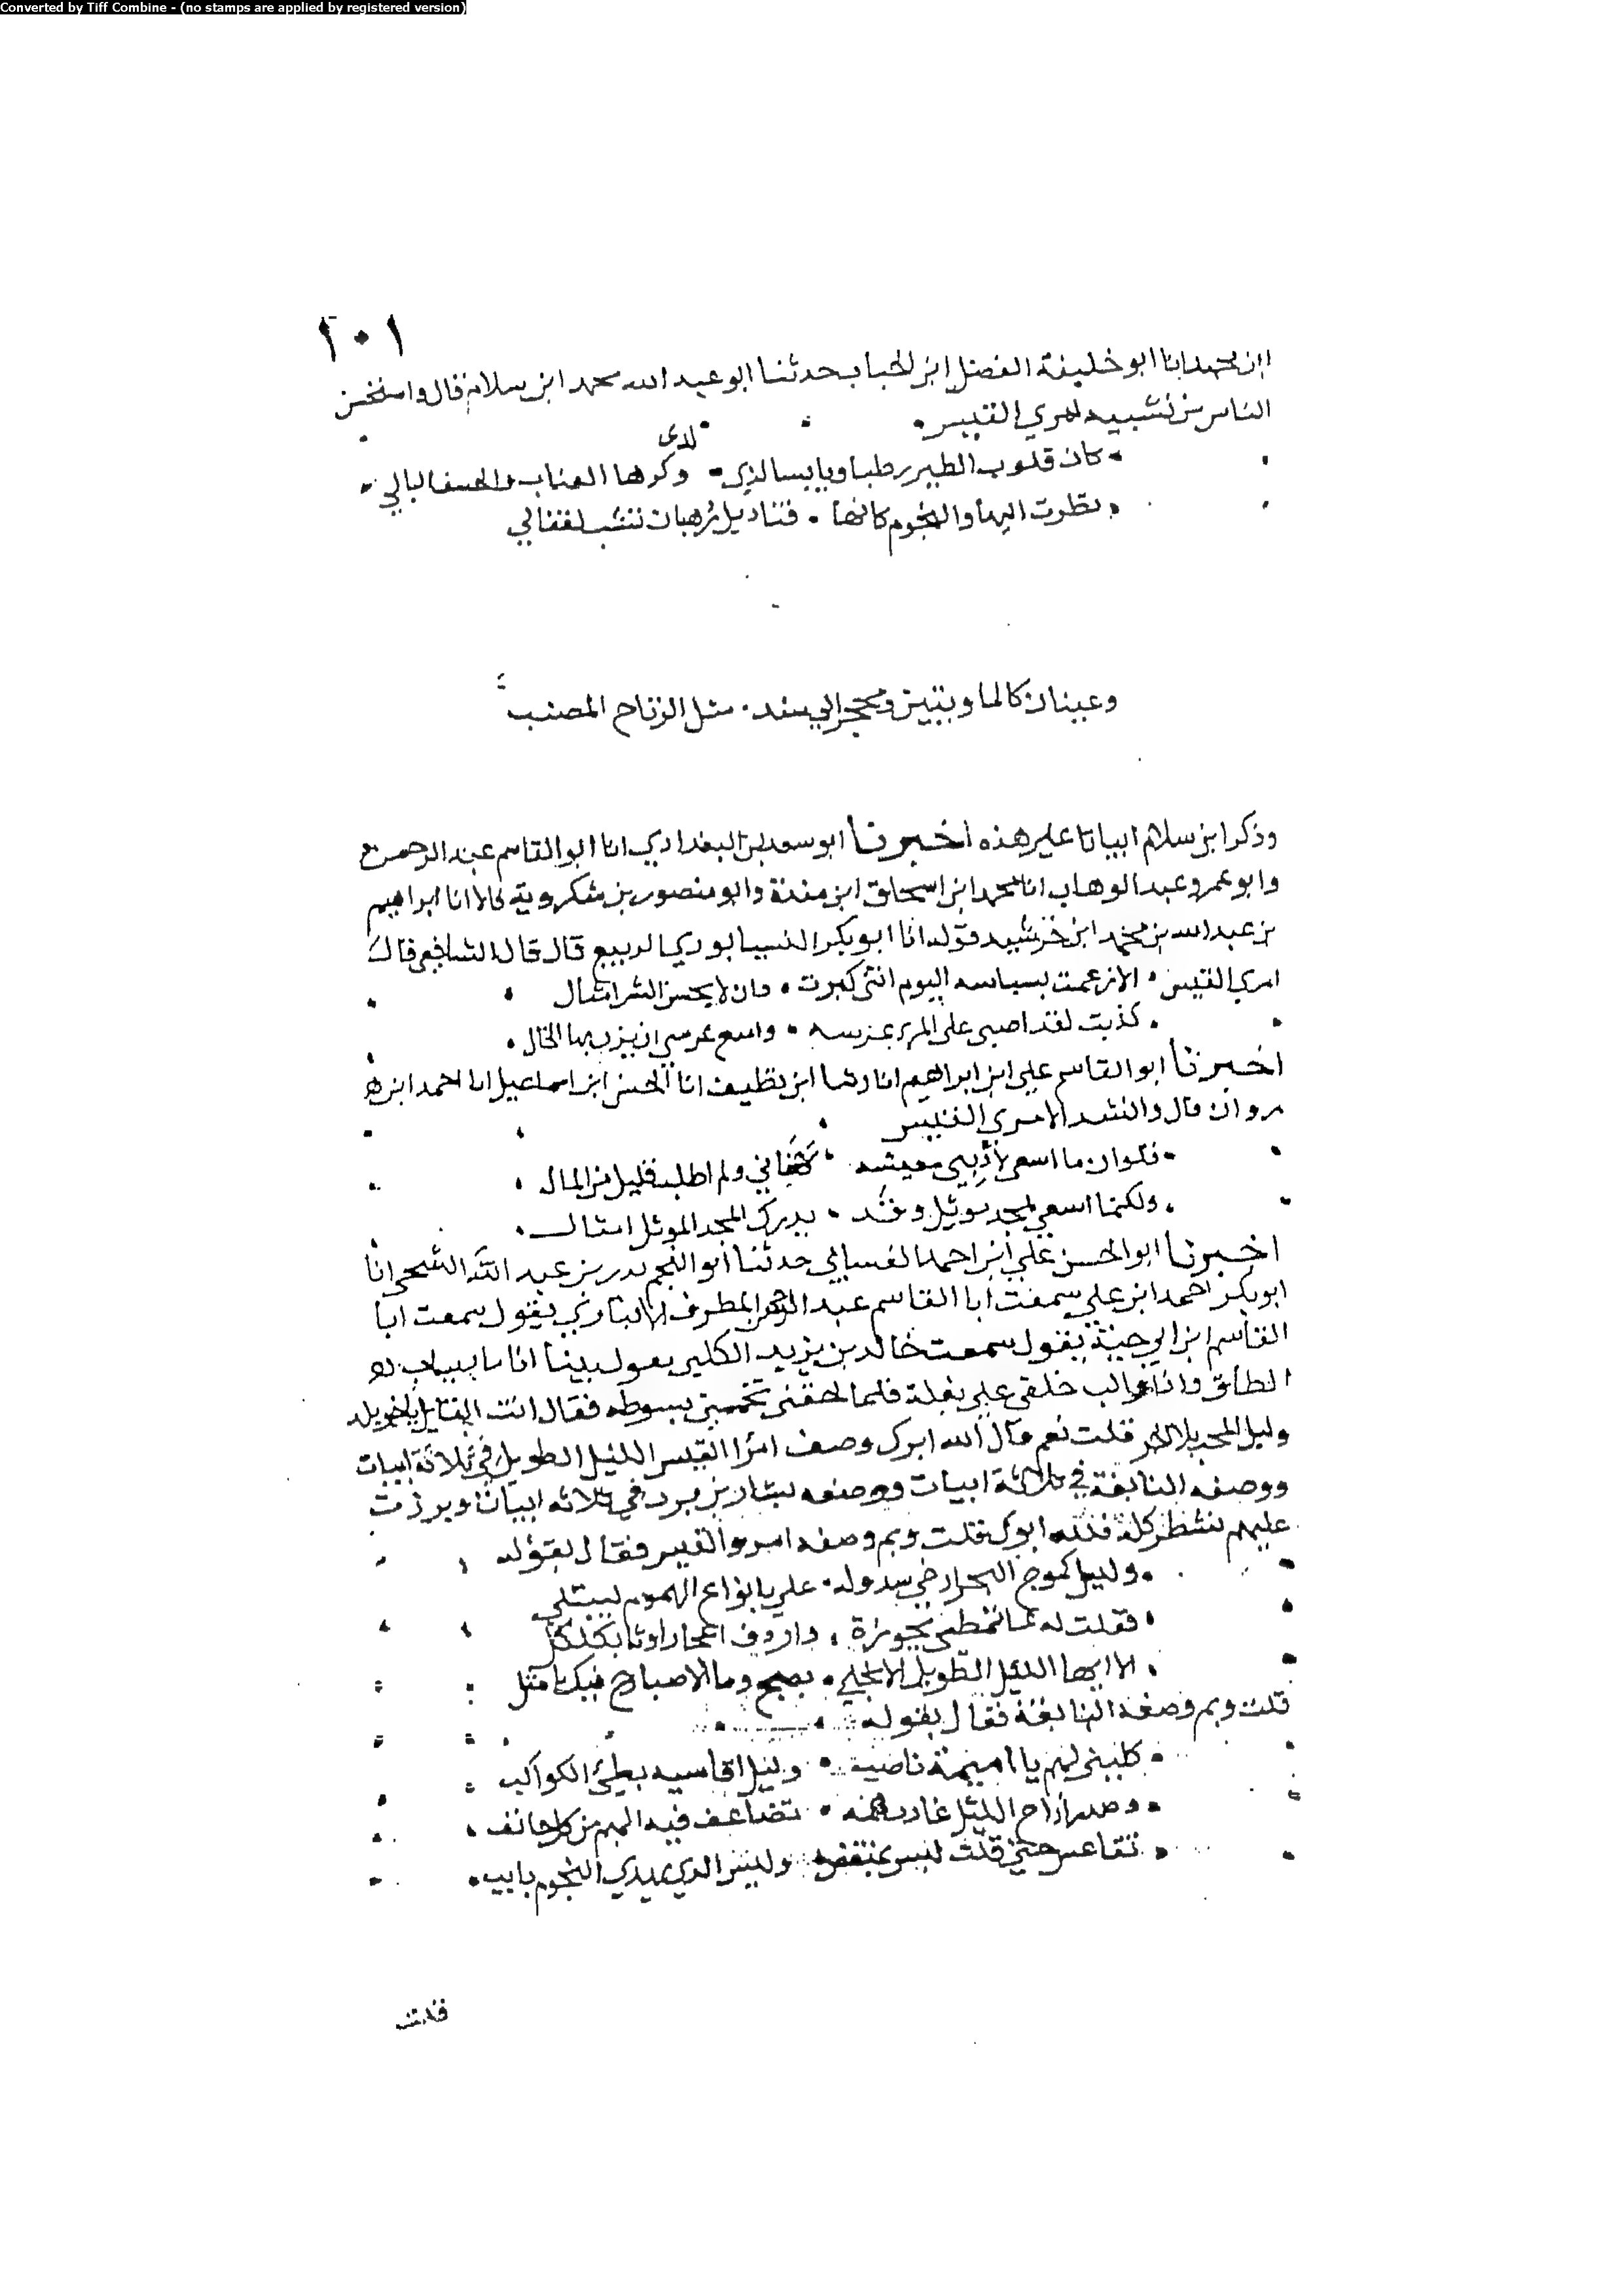 Converted by Tiff Combine - (no stamps are applied by registered version)
٢٠١
ابن محمد انا ابو خليفة الفضل ابن الحباب حدثنا ابو عبد الله محمد ابن سلام قال واستحسن
الناس من تشبيه امري القيس
لدى
كان قلوب الطير رطبا ويابسا لذي وكرها العناب والحسف البالي
نظرت اليها والنجوم كانها قناديل رهبان تشب لقفالي
وعينان كالماويتين ومحجر الي سند مثل الرتاح المصنب
وذكر ابن سلام ابياتا غير هذه اخبرنا ابو سعد بن البغدادي انا ابو القاسم عبد الرحمن
وابو عمرو عبد الوهاب انا محمد ابن اسحاق ابن مندة وابو منصور بن شكروية قالا انا ابراهيم
بن عبد الله بن محمد ابن خرشيد قوله انا ابو بكر النيسابوري الربيع قال قال الشافعي قال
امري القيس الا زعمت بسباسه اليوم انني كبرت وان لا يحسن السر امثال
كذبت لقد اصبى على المرء عرسه وامنع عرسي ان يزن بها الخال
اخبرنا ابو القاسم علي ابن ابراهيم انا رشا ابن نظيف انا الحسن ابن اسماعيل انا احمد ابن
مروان قال وانشد لامري القيس
فلو ان ما اسعى لأدني معيشه كفاني ولم اطلب قليل من المال
ولكنما اسعي لمجد موثل وقد يدرك المجد الموثل امثال
اخبرنا ابو الحسن علي ابن احمد الغساني حدثنا ابو النجم بدر بن عبد الله الشيحي انا
ابو بكر احمد ابن علي سمعت ابا القاسم عبد الرحمن المطرف يقول سمعت ابا
القاسم ابن ابي حبيبة يقول سمعت خالد بن يزيد الكلبي يقول بينا انا بباب
الطاق وانا خلفي علي بغلة فلما لحقني نخسني بسوطه فقال انت القايل
وليل المحب بلا اخر قلت نعم قال لله ابوك وصف امرا القيس الليل الطويل في ثلاثة ابيات
ووصفه النابغة في ثلاثة ابيات ووصفه بشار بن برد في ثلاثه ابيات وبرزت
عليهم بشطر كلمة فلله ابوك قلت وبم وصفه امرو القيس فقال بقوله
وليل كموج البحر ارخي سدوله علي بانواع الهموم ليبتلي
فقلت له لما تمطى بجوزة واردف اعجازا ونا بكلكل
الا ايها الليل الطويل الا انجلي بصبح وما الاصباح فيك بامثل
قلت وبم وصفه النابغة فقال بقوله
كليني لهم يا اميمة ناصب وليل اقاسيه بطئ الكواكب
وصدر اراح الليل عازب همه تضاعف فيه الهم من كل جانف
تقاعس حتى قلت ليس بمنقض وليس الذي يهدي النجوم بايب
قلت